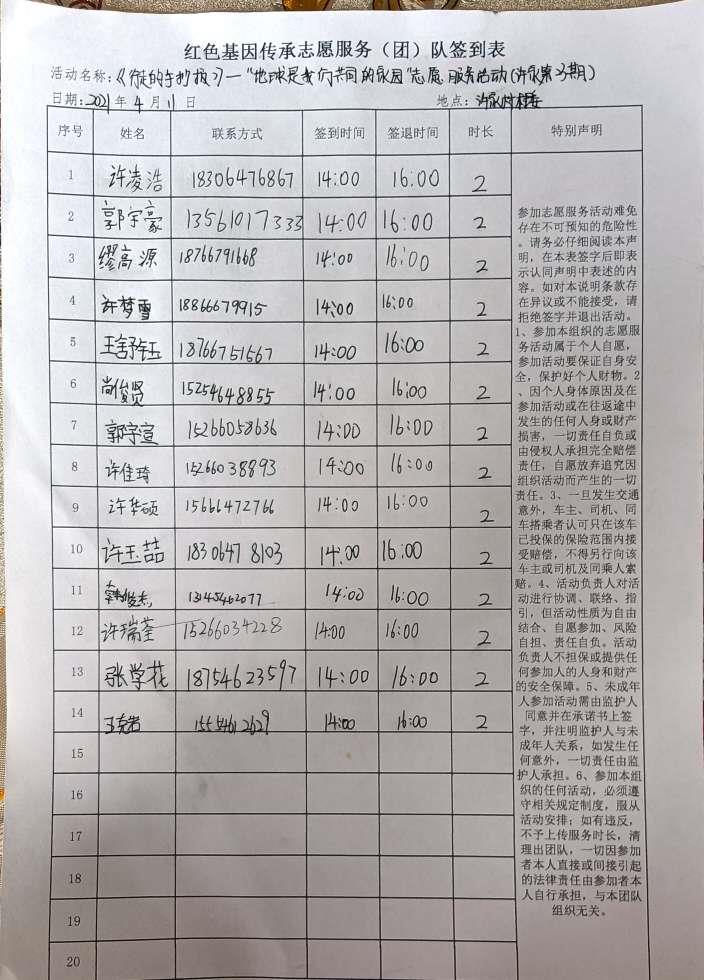 红色基因传承志愿服务（团）队签到表
活动名称：“地球是我们共同的家园”志愿服务活动(许家第23期)
日期：2021年 4 月 11 日 地点：
序号 姓名 联系方式 签到时间 签退时间 时长 特别声明
1 许凌浩 18306476867 14:00 16:00 2
2 郭宇豪 13561017333 14:00 16:00 2
3 缪高源 18766791668 14:00 16:00 2
4 许梦雪 18866679915 14:00 16:00 2
5 王舒钰 18766751567 14:00 16:00 2
6 尚俊贤 15254648855 14:00 16:00 2
7 郭宇宣 15266058636 14:00 16:00 2
8 许佳琦 15266038893 14:00 16:00 2
9 许华硕 15666472766 14:00 16:00 2
10 许玉喆 18306478103 14:00 16:00 2
11 14:00 16:00 2
12 许瑞荃 15266034228 14:00 16:00 2
13 张学花 18754623597 14:00 16:00 2
14 14:00 16:00 2
15
16
17
18
19
20
参加志愿服务活动难免
存在不可预知的危险性
。请务必仔细阅读本声
明，在本表签字后即表
示认同声明中表述的内
容。如对本说明条款存
在异议或不能接受，请
拒绝签字并退出活动。
1、参加本组织的志愿服
务活动属于个人自愿，
参加活动要保证自身安
全，保护好个人财物。2
、因个人身体原因及在
参加活动或在往返途中
发生的任何人身或财产
损害，一切责任自负或
由侵权人承担完全赔偿
责任，自愿放弃追究因
组织活动而产生的一切
责任。3、一旦发生交通
意外，车主、司机、同
车搭乘者认可只在该车
已投保的保险范围内接
受赔偿，不得另行向该
车主或司机及同乘人索
赔。4、活动负责人对活
动进行协调、联络、指
引，但活动性质为自由
结合、自愿参加、风险
自担、责任自负。活动
负责人不担保或提供任
何参加人的人身和财产
的安全保障。5、未成年
人参加活动需由监护人
同意并在承诺书上签
字，并注明监护人与未
成年人关系，如发生任
何意外，一切责任由监
护人承担。6、参加本组
织的任何活动，必须遵
守相关规定制度，服从
活动安排；如有违反，
不予上传服务时长，清
理出团队，一切因参加
者本人直接或间接引起
的法律责任由参加者本
人自行承担，与本团队
组织无关。